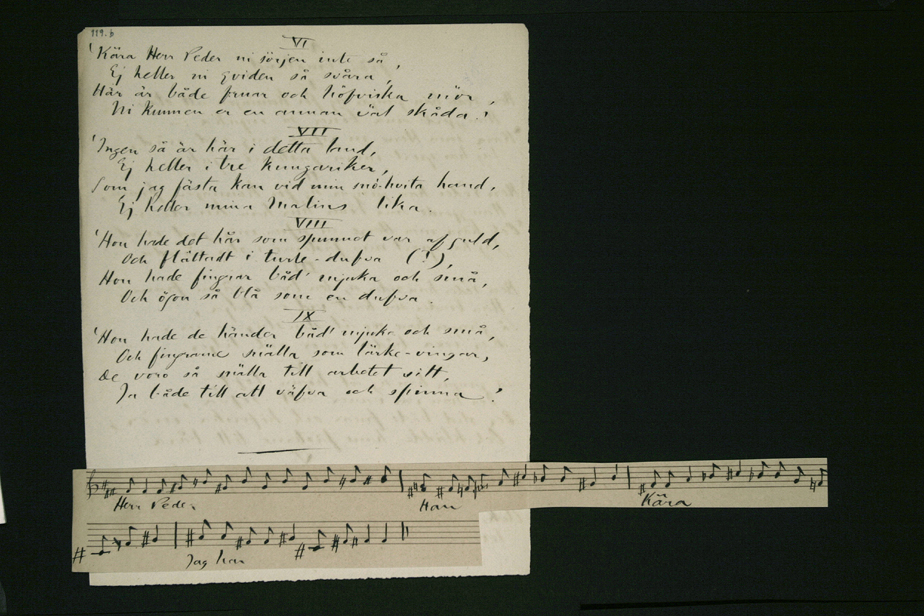 119.b
VI
'Kära Herr Peder ni sörjen inte så,
Ej heller ni qviden så svåra,
Här är både fruar och höfviska mör,
Ni kunnen er en annan väl skåda!'
VII
'Ingen så är här i detta land,
Ej heller i tre kungariken,
Som jag fästa kan vid min snö-hvita hand,
Ej heller mina Malins lika.
VIII
'Hon hade det hår som spunnet var af guld,
Och flättadt i turle-dufva (!),
Hon hade fingrar båd' mjuka och små,
Och ögon så blå som en dufva.
IX
'Hon hade de händer båd' mjuka och små,
Och fingrarne snälla som lärke-vingar,
De voro så snälla till arbetet sitt,
Ja både till att väfva och spinna!'
Herr Peder
Han
Kära
Jag har